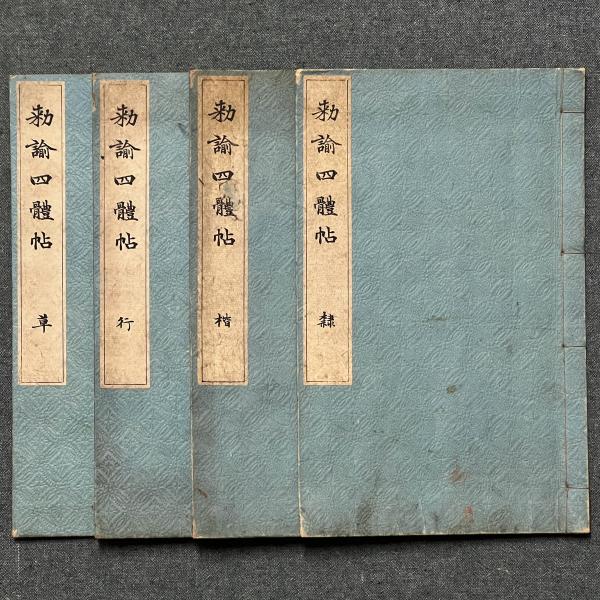 勅諭四體帖 隸
勅諭四體帖 楷
勅諭四體帖 行
勅諭四體帖 草